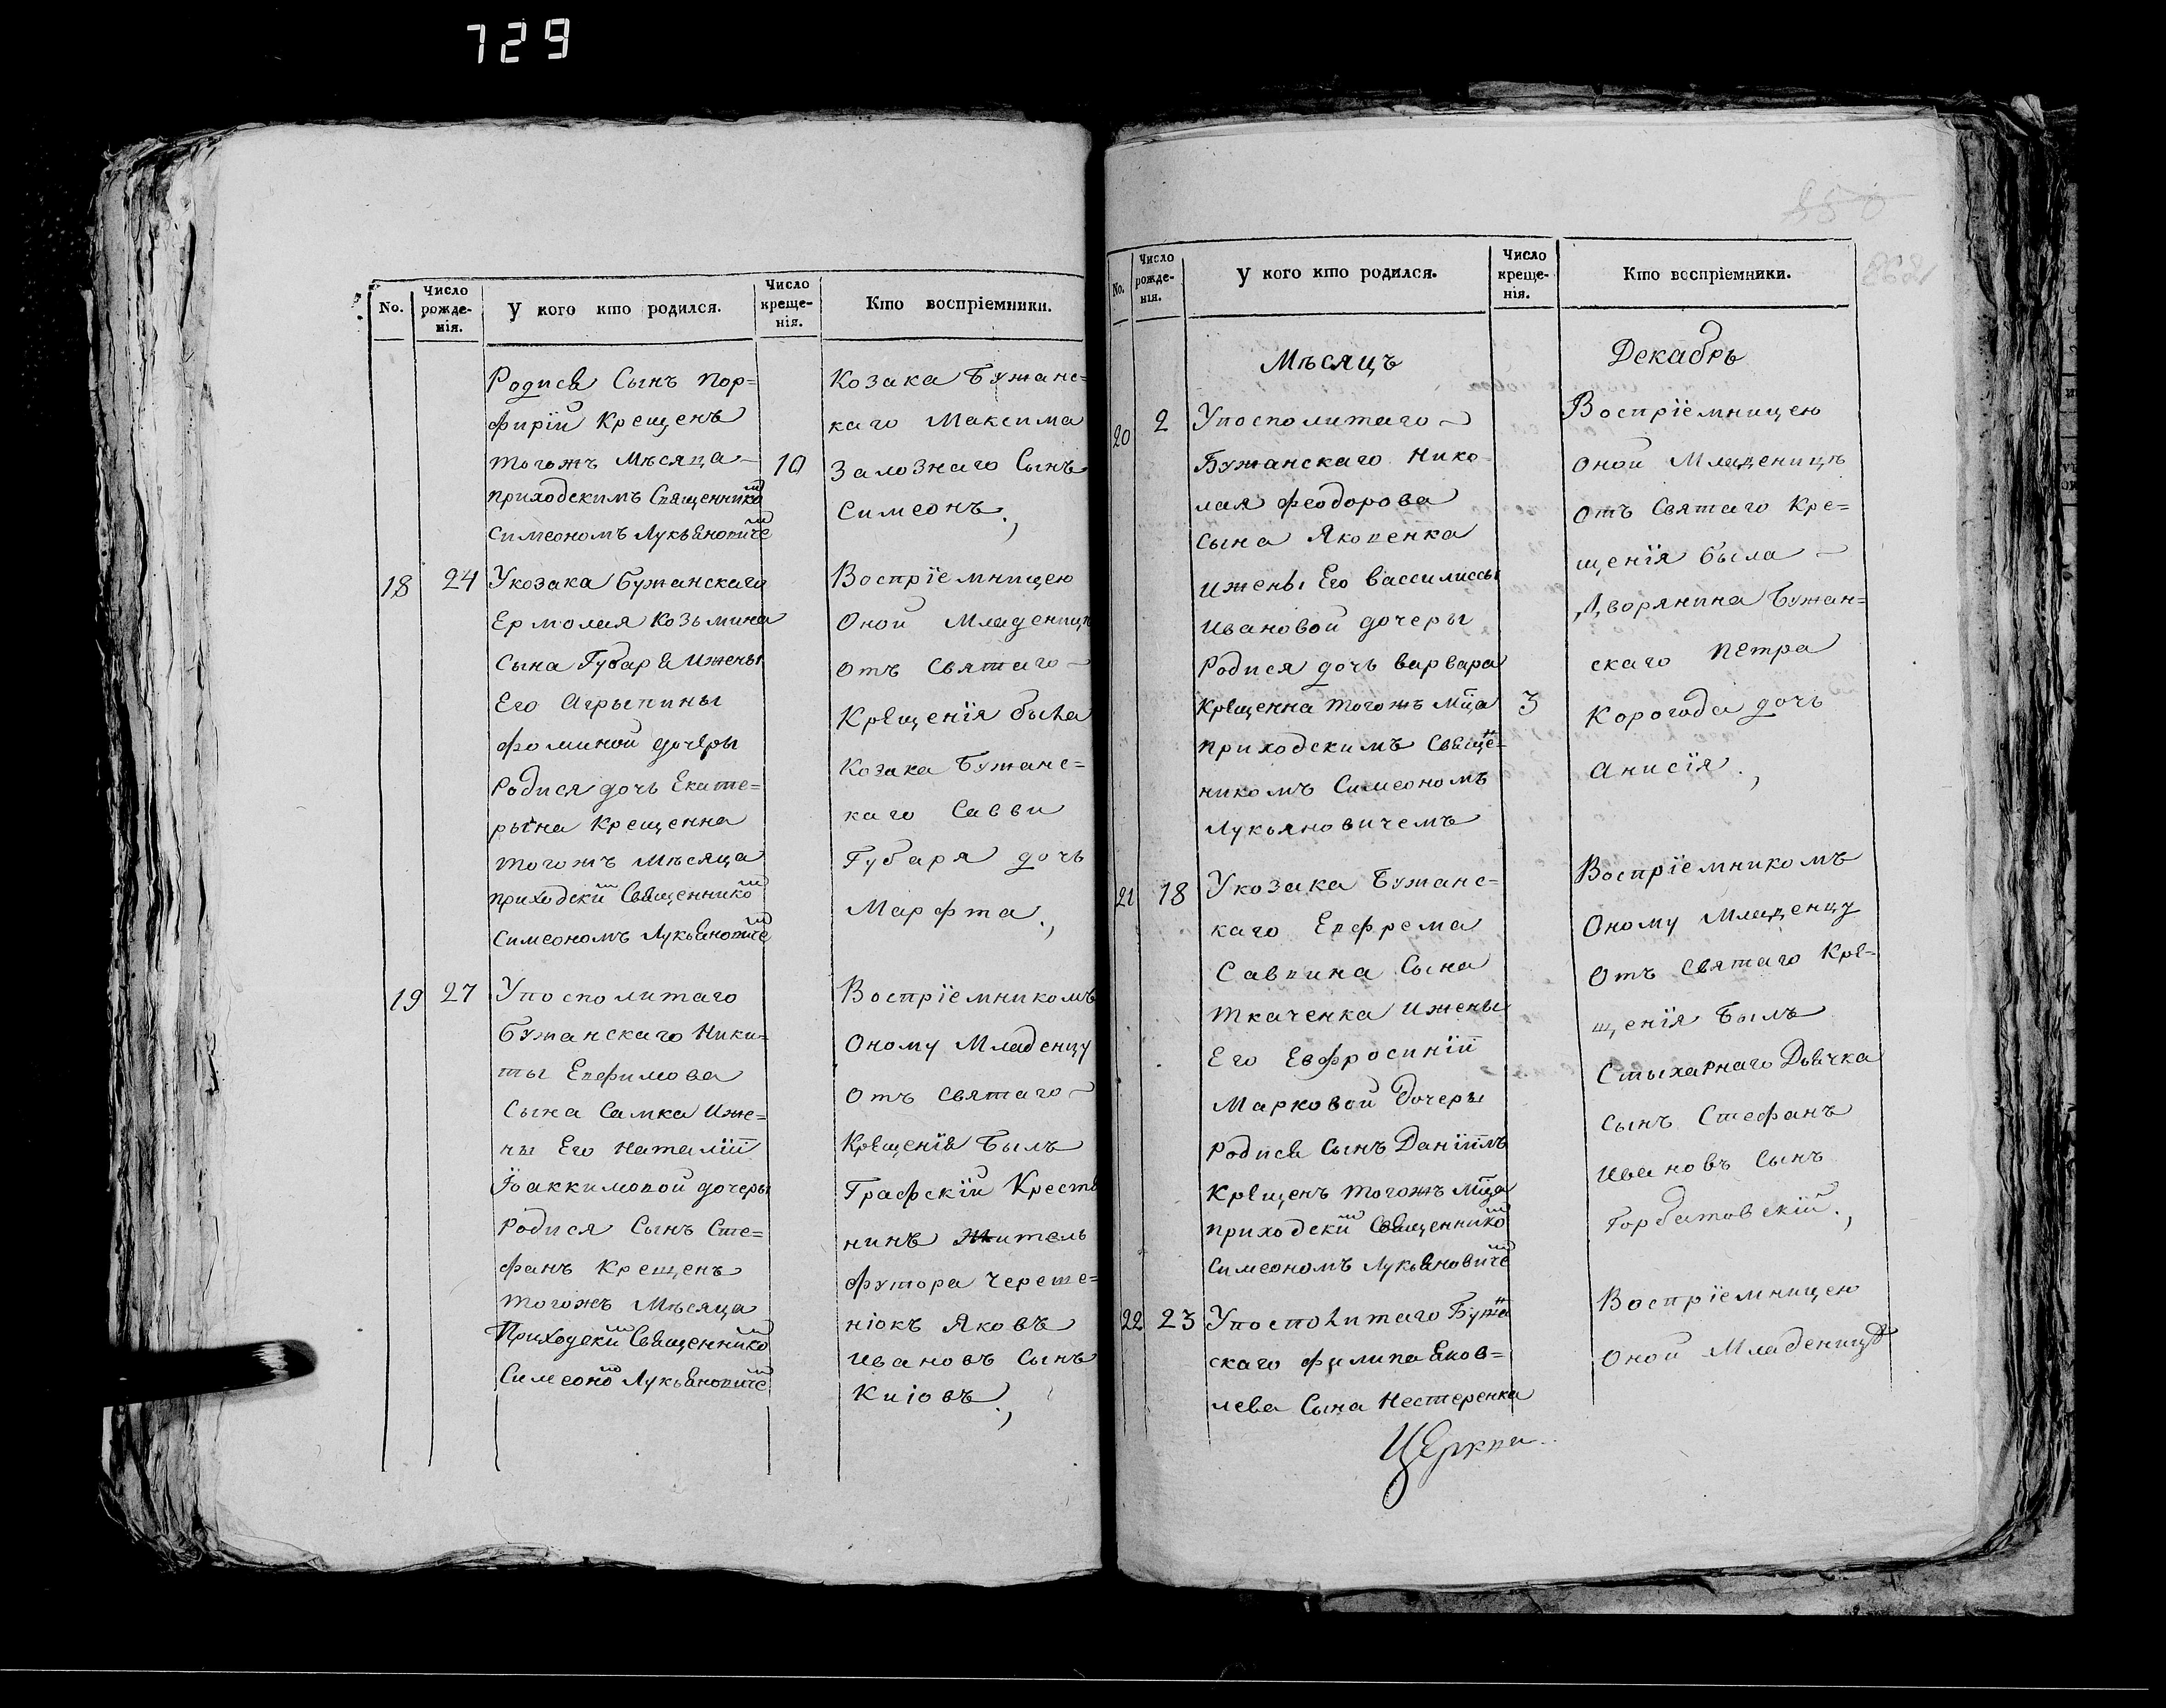 729
No.
Число рожде-нія.
У кого кто родился.
Число креще-нія.
Кто воспріемники.
Родися Сынъ Пор=
фирій Крещенъ
тогожъ Мѣсяца 10
приходскимъ Священникомъ
Симеономъ Лукьяновиче
Козака Бужанс=
каго Максима
Зало́знаго Сынъ
Симеонъ.,
18 24 Укозака Бужанскаго
Ермолая Козьмина
Сына Губаря Ижены
Его Агрыпины
Фоминой дочеры
Родися дочь Екате=
рына Крещенна
тогожъ Мѣсяца
приходскимъ Священникомъ
Симеономъ Лукьяновиче
Воспріемницею
Оной Младеницѣ
отъ Святаго
Крещенія была
Козака Бужанс=
каго Савви
Губаря дочь
Марфта.,
19 27 Упосполитаго
Бужанскаго Ники=
ты Епфимова
Сына Самка Иже=
ны Его Наталіи
Іоаккимовой дочеры
Родися Сынъ Сте=
фанъ Крещенъ
тогожъ Мѣсяца
Приходски Священнико
Симеоно Лукьяновиче
Воспріемникомъ
Оному Младенцу
Отъ Святаго
Крещенія Былъ
Графскій Крестя
нинъ Житель
футора Череше=
ніокъ Яковъ
Ивановъ Сынъ
Киіовъ.,
No.
Число рожде-нія.
У кого кто родился.
Число креще-нія.
Кто воспріемники.
Мѣсяцъ Декабрь
20 2 Упосполитаго
Бужанскаго Нико
лая Феодорова
Сына Яковенка
Ижены Его Вассилиссы
Ивановой дочеры
Родися дочь Варвара
Крещенна тогожъ Мца 3
приходскимъ Свяще=
никомъ Симеономъ
Лукьяновичемъ
Воспріемницею
оной Младеницѣ
отъ Святаго Кре=
щенія была
Дворянина Бужан=
скаго Петра
Корогода дочь
Анисія.,
21 18 Укозака Бужанс=
каго Епфрема
Саввина Сына
Ткаченка Ижены
Его Евфросиніи
Марковой Дочеры
Родися Сынъ Даніилъ
Крещенъ тогожъ Мца
приходски Священнико
Симеономъ Лукьяновиче
Воспріемникомъ
Оному Младенцу
Отъ Святаго Кре=
щенія Былъ
Стыхарнаго Дьячка
Сынъ Стефанъ
Ивановъ Сынъ
Горбатовскій.,
22 23 Упосполитаго Бужа
скаго Филипа Яков=
лева Сына Нестеренка
Воспріемницею
Оной Младеницѣ
Церкви